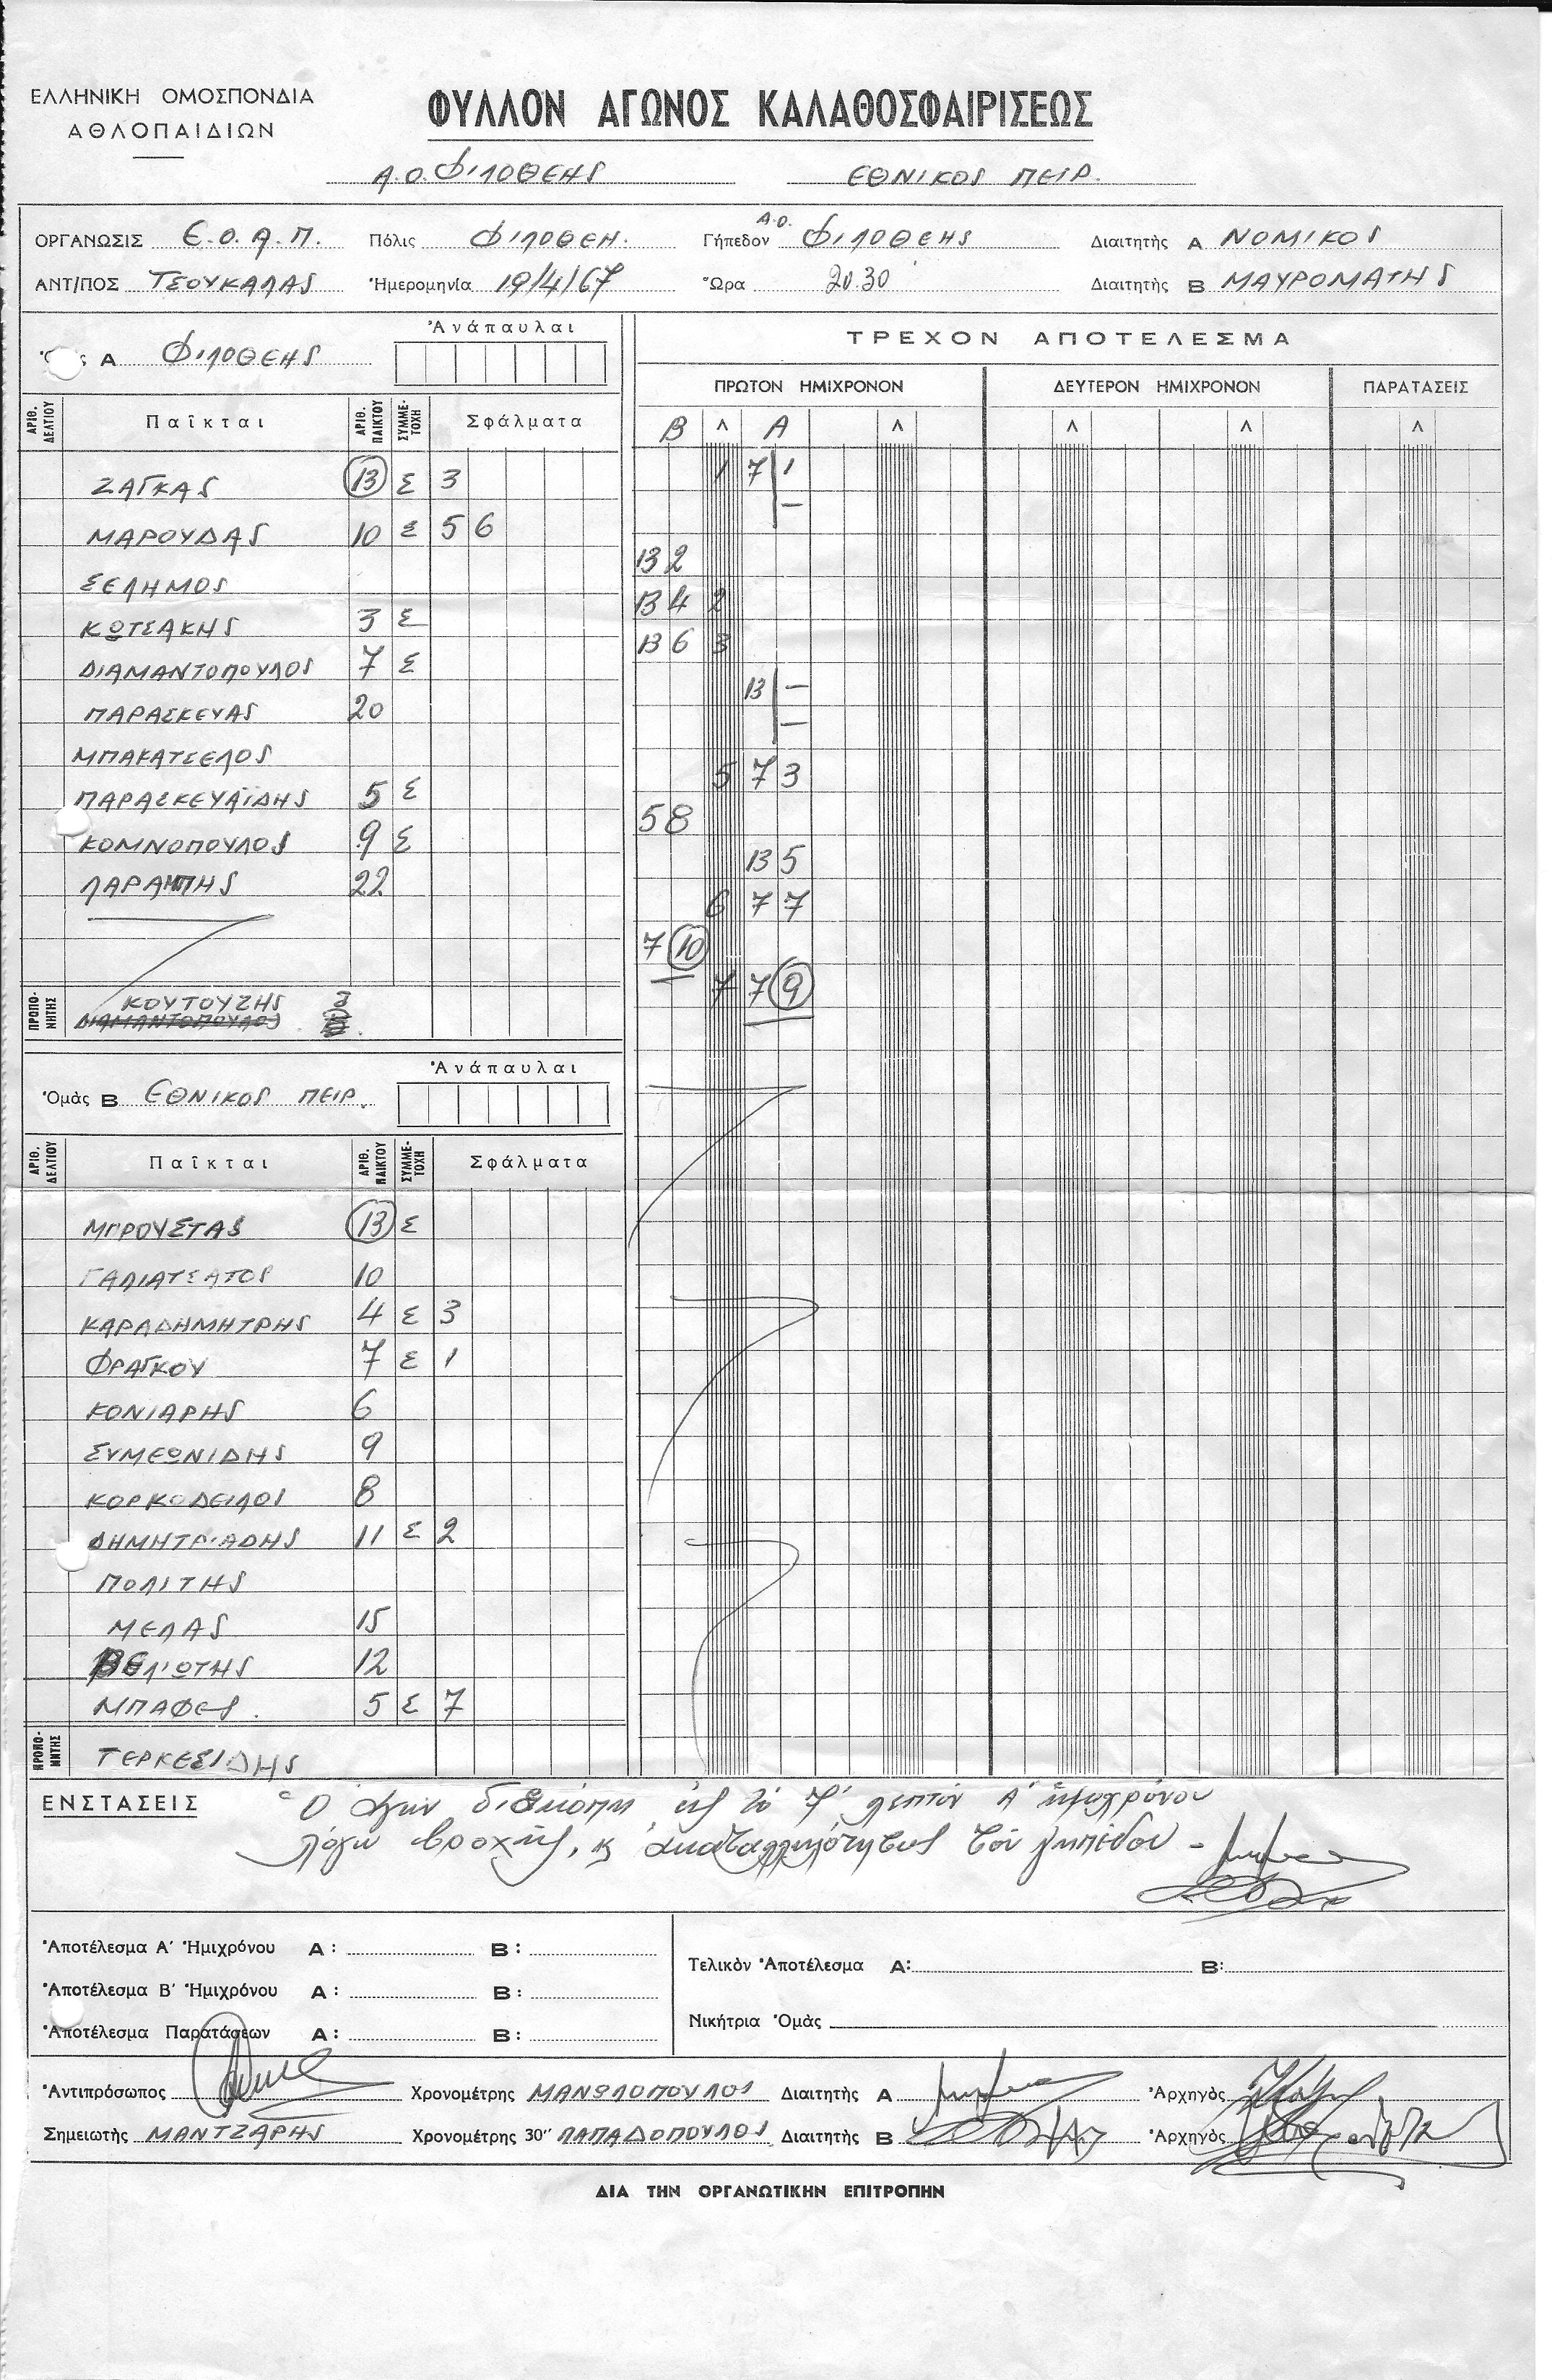 ΕΛΛΗΝΙΚΗ ΟΜΟΣΠΟΝΔΙΑ
ΑΘΛΟΠΑΙΔΙΩΝ
ΦΥΛΛΟΝ ΑΓΩΝΟΣ ΚΑΛΑΘΟΣΦΑΙΡΙΣΕΩΣ
Α.Ο. ΦΙΛΟΘΕΗΣ ΕΘΝΙΚΟΣ ΠΕΙΡ.
ΟΡΓΑΝΩΣΙΣ Ε.Ο.Α.Π. Πόλις ΦΙΛΟΘΕΗ. Γήπεδον Α.Ο. ΦΙΛΟΘΕΗΣ Διαιτητὴς Α ΝΟΜΙΚΟΣ
ΑΝΤ/ΠΟΣ ΤΣΟΥΚΑΛΑΣ Ἡμερομηνία 19/4/67 Ὥρα 20.30 Διαιτητὴς Β ΜΑΥΡΟΜΑΤΗΣ
Α ΦΙΛΟΘΕΗΣ Ἀνάπαυλαι
ΤΡΕΧΟΝ ΑΠΟΤΕΛΕΣΜΑ
ΠΡΩΤΟΝ ΗΜΙΧΡΟΝΟΝ ΔΕΥΤΕΡΟΝ ΗΜΙΧΡΟΝΟΝ ΠΑΡΑΤΑΣΕΙΣ
ΑΡΙΘ. ΔΕΛΤΙΟΥ Παῖκται ΑΡΙΘ. ΠΑΙΚΤΟΥ ΣΥΜΜΕΤΟΧΗ Σφάλματα
Β Λ Α Λ Λ Λ Λ
ΖΑΓΚΑΣ 13 Σ 3
ΜΑΡΟΥΔΑΣ 10 Σ 5 6
ΣΕΛΗΜΟΣ
ΚΩΤΣΑΚΗΣ 3 Σ
ΔΙΑΜΑΝΤΟΠΟΥΛΟΣ 7 Σ
ΠΑΡΑΣΚΕΥΑΣ 20
ΜΠΑΚΑΤΣΕΛΟΣ
ΠΑΡΑΣΚΕΥΑΪΔΗΣ 5 Σ
ΚΟΜΝΟΠΟΥΛΟΣ 9 Σ
ΛΑΡΑΜΠΗΣ 22
ΠΡΟΠΟΝΗΤΗΣ ΚΟΥΤΟΥΖΗΣ
ΔΙΑΜΑΝΤΟΠΟΥΛΟΣ
1 7 1
—
13 2
13 4 2
13 6 3
13 —
—
5 7 3
5 8
13 5
6 7 7
7 10
7 7 9
Ὁμὰς Β ΕΘΝΙΚΟΣ ΠΕΙΡ. Ἀνάπαυλαι
ΑΡΙΘ. ΔΕΛΤΙΟΥ Παῖκται ΑΡΙΘ. ΠΑΙΚΤΟΥ ΣΥΜΜΕΤΟΧΗ Σφάλματα
ΜΠΡΟΥΣΤΑΣ 13 Σ
ΓΑΛΙΑΤΣΑΤΟΣ 10
ΚΑΡΑΔΗΜΗΤΡΗΣ 4 Σ 3
ΦΡΑΓΚΟΥ 7 Σ 1
ΚΟΝΙΑΡΗΣ 6
ΣΥΜΕΩΝΙΔΗΣ 9
ΚΟΡΚΟΔΕΙΛΟΣ 8
ΔΗΜΗΤΡΙΑΔΗΣ 11 Σ 2
ΠΟΛΙΤΗΣ
ΜΕΛΑΣ 15
ΒΕΛΙΩΤΗΣ 12
ΜΠΑΦΕΣ. 5 Σ 7
ΠΡΟΠΟΝΗΤΗΣ ΤΕΡΚΕΣΙΔΗΣ
ΕΝΣΤΑΣΕΙΣ Ὁ ἀγών διεκόπη εἰς τὸ 7' λεπτόν Α' ἡμιχρόνου
λόγω βροχῆς, κ ἀκαταλληλότητος τοῦ γηπέδου -
Ἀποτέλεσμα Α' Ἡμιχρόνου Α: Β:
Ἀποτέλεσμα Β' Ἡμιχρόνου Α: Β:
Ἀποτέλεσμα Παρατάσεων Α: Β:
Τελικὸν Ἀποτέλεσμα Α: Β:
Νικήτρια Ὁμὰς
Ἀντιπρόσωπος Χρονομέτρης ΜΑΝΩΛΟΠΟΥΛΟΣ Διαιτητὴς Α Ἀρχηγὸς
Σημειωτὴς ΜΑΝΤΖΑΡΗΣ Χρονομέτρης 30'' ΠΑΠΑΔΟΠΟΥΛΟΣ Διαιτητὴς Β Ἀρχηγὸς
ΔΙΑ ΤΗΝ ΟΡΓΑΝΩΤΙΚΗΝ ΕΠΙΤΡΟΠΗΝ